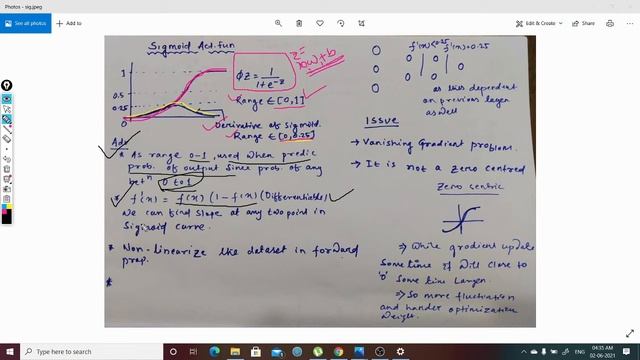 Photos - sig.jpeg
See all photos
+ Add to
Edit & Create
Share
Sigmoid Act.fun
1
0.5
0.25
0
ΦZ = 1 / 1+e^-z
z = xw+b
Range ∈ [0,1]
Derivative of Sigmoid.
Range ∈ [0,0.25]
Adv
* As range 0-1, used when predic
prob. of output since prob. of any
betn 0 to 1
* f'(x) = f(x) (1-f(x)) (Differentiable)
we can find slope at any two point in
Sigmoid curve.
* Non-linearize the dataset in forward
prop.
*
0 f'(x)<0.25 f'(x)=0.25
0 0 0
0 0
0
as is dependent
on previous layer
as well
Issue
→ Vanishing Gradient problem.
→ It is not a zero centred
zero centric
⇒ While gradient update
Some time it will close to
'0' Some time larger.
⇒ So more fluctuation
and harder optimization
weight.
Type here to search
ENG
04:35 AM
02-06-2021